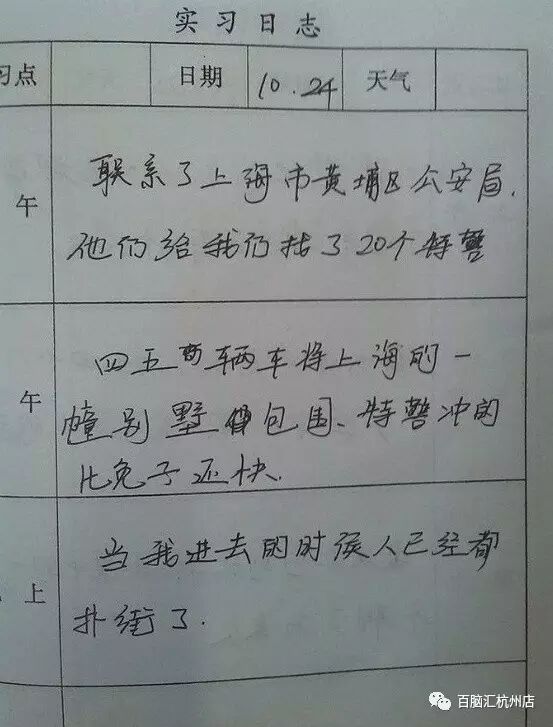 实习日志
习点 日期 10.24 天气
午
联系了上海市黄埔区公安局,
他们给我们找了20个特警
午
四五辆车将上海的一
幢别墅包围、特警冲的
比兔子还快.
上
当我进去的时侯人已经都
扑街了.
百脑汇杭州店